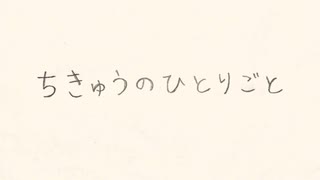 ちきゅうのひとりごと